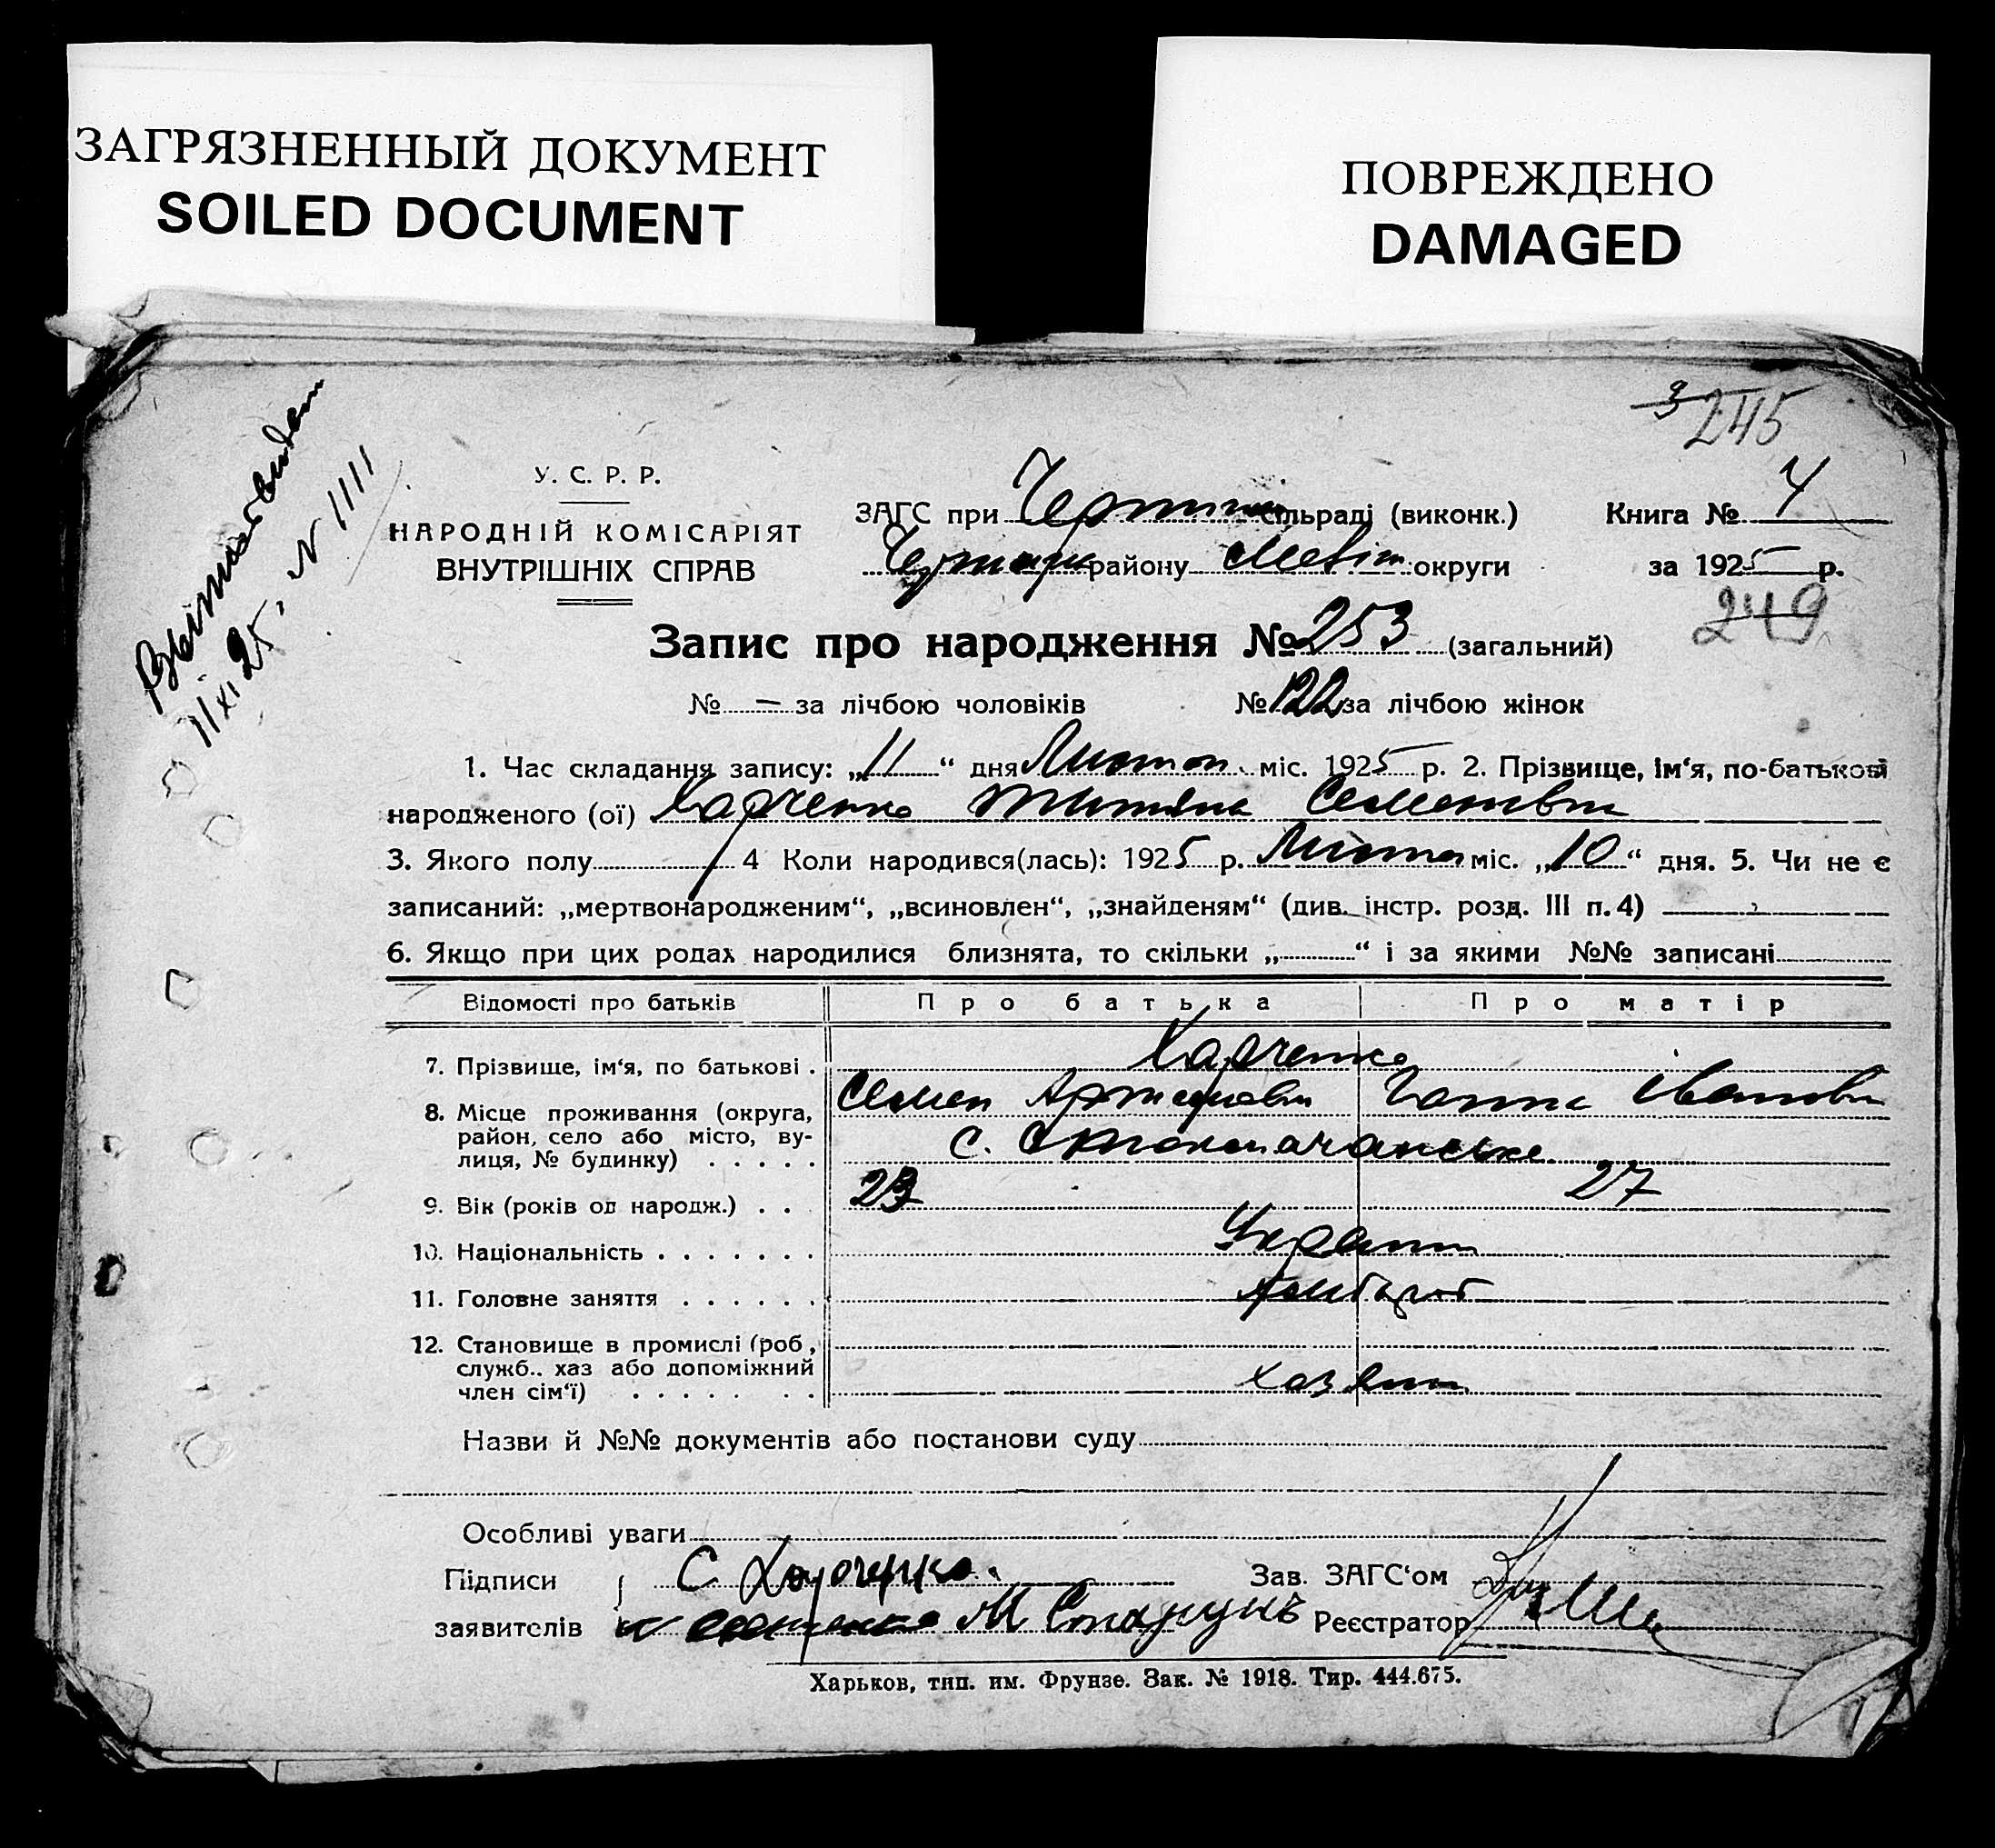 ЗАГРЯЗНЕННЫЙ ДОКУМЕНТ
SOILED DOCUMENT
ПОВРЕЖДЕНО
DAMAGED
3 245
У. С. Р. Р.
НАРОДНІЙ КОМІСАРІЯТ
ВНУТРІШНІХ СПРАВ
11 XI 25, N 1111
ЗАГС при сільраді (виконк.) Книга № 4
району округи за 1925 р.
249
Запис про народження № 253 (загальний)
№ — за лічбою чоловіків № 122 за лічбою жінок
1. Час складання запису: „11“ дня Листоп міс. 1925 р. 2. Прізвище, ім‘я, по-батькові
народженого (ої) Харченко Титяна Семеновна
3. Якого полу 4 Коли народився(лась): 1925 р. Листоп міс. „10“ дня. 5. Чи не є
записаний: „мертвонародженим“, „всиновлен“, „знайденям“ (див. інстр. розд. III п. 4) —
6. Якщо при цих родах народилися близнята, то скільки „ “ і за якими №№ записані
Відомості про батьків Про батька Про матір
7. Прізвище, ім‘я, по батькові . Харченко
Семен Ганна Іванов
8. Місце проживання (округа,
район, село або місто, ву-
лиця, № будинку) . . . . . с.
9. Вік (років од народж.) . . 23 27
10. Національність . . . . . . . Україн
11. Головне заняття . . . . . .
12. Становище в промислі (роб,
служб.. хаз або допоміжний
член сім‘ї) . . . . . . . Хозяин
Назви й №№ документів або постанови суду
Особливі уваги
Підписи С Харченко.
Зав. ЗАГС‘ом
заявителів М
Реєстратор
Харьков, тип. им. Фрунзе. Зак. № 1918. Тир. 444.675.